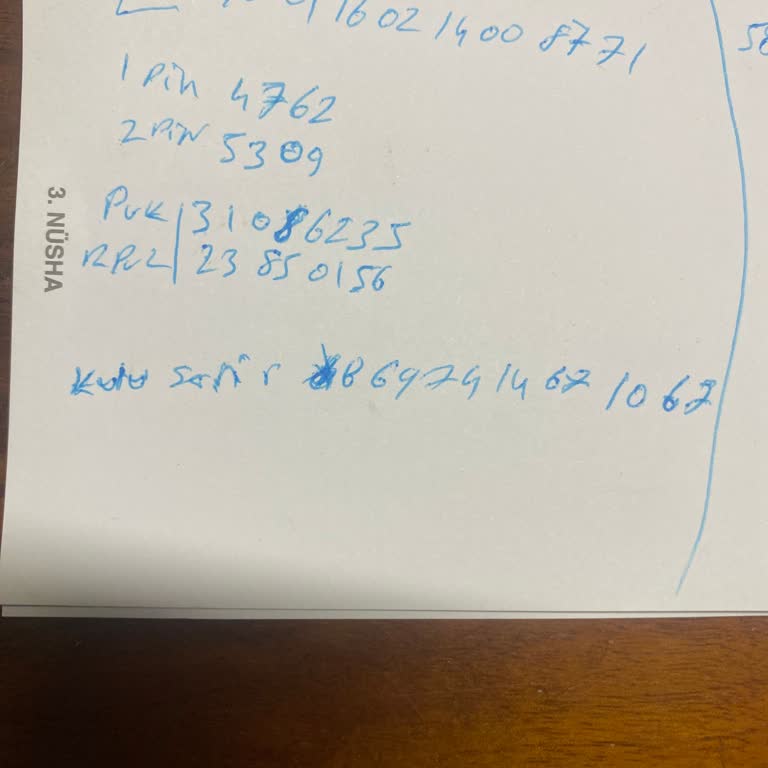 1602 1400 8771
58
1 Pin 4762
2 Pin 5309
Puk 31086235
2Pu2 23850156
3. NÜSHA
Kutu Seri 8697414671067